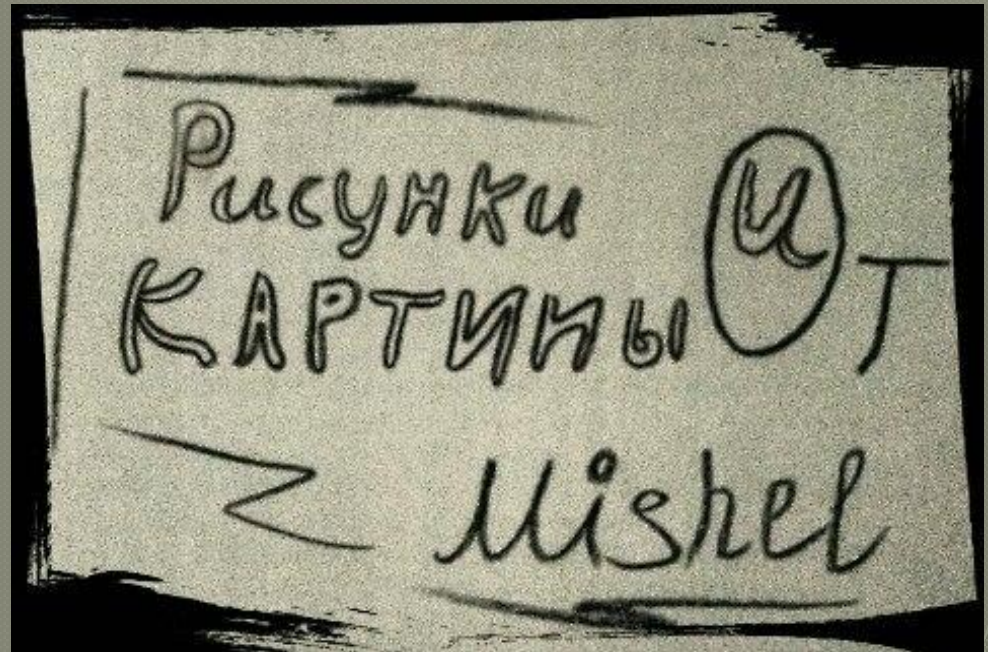 Рисунки и
КАРТИНЫ от
Mishel